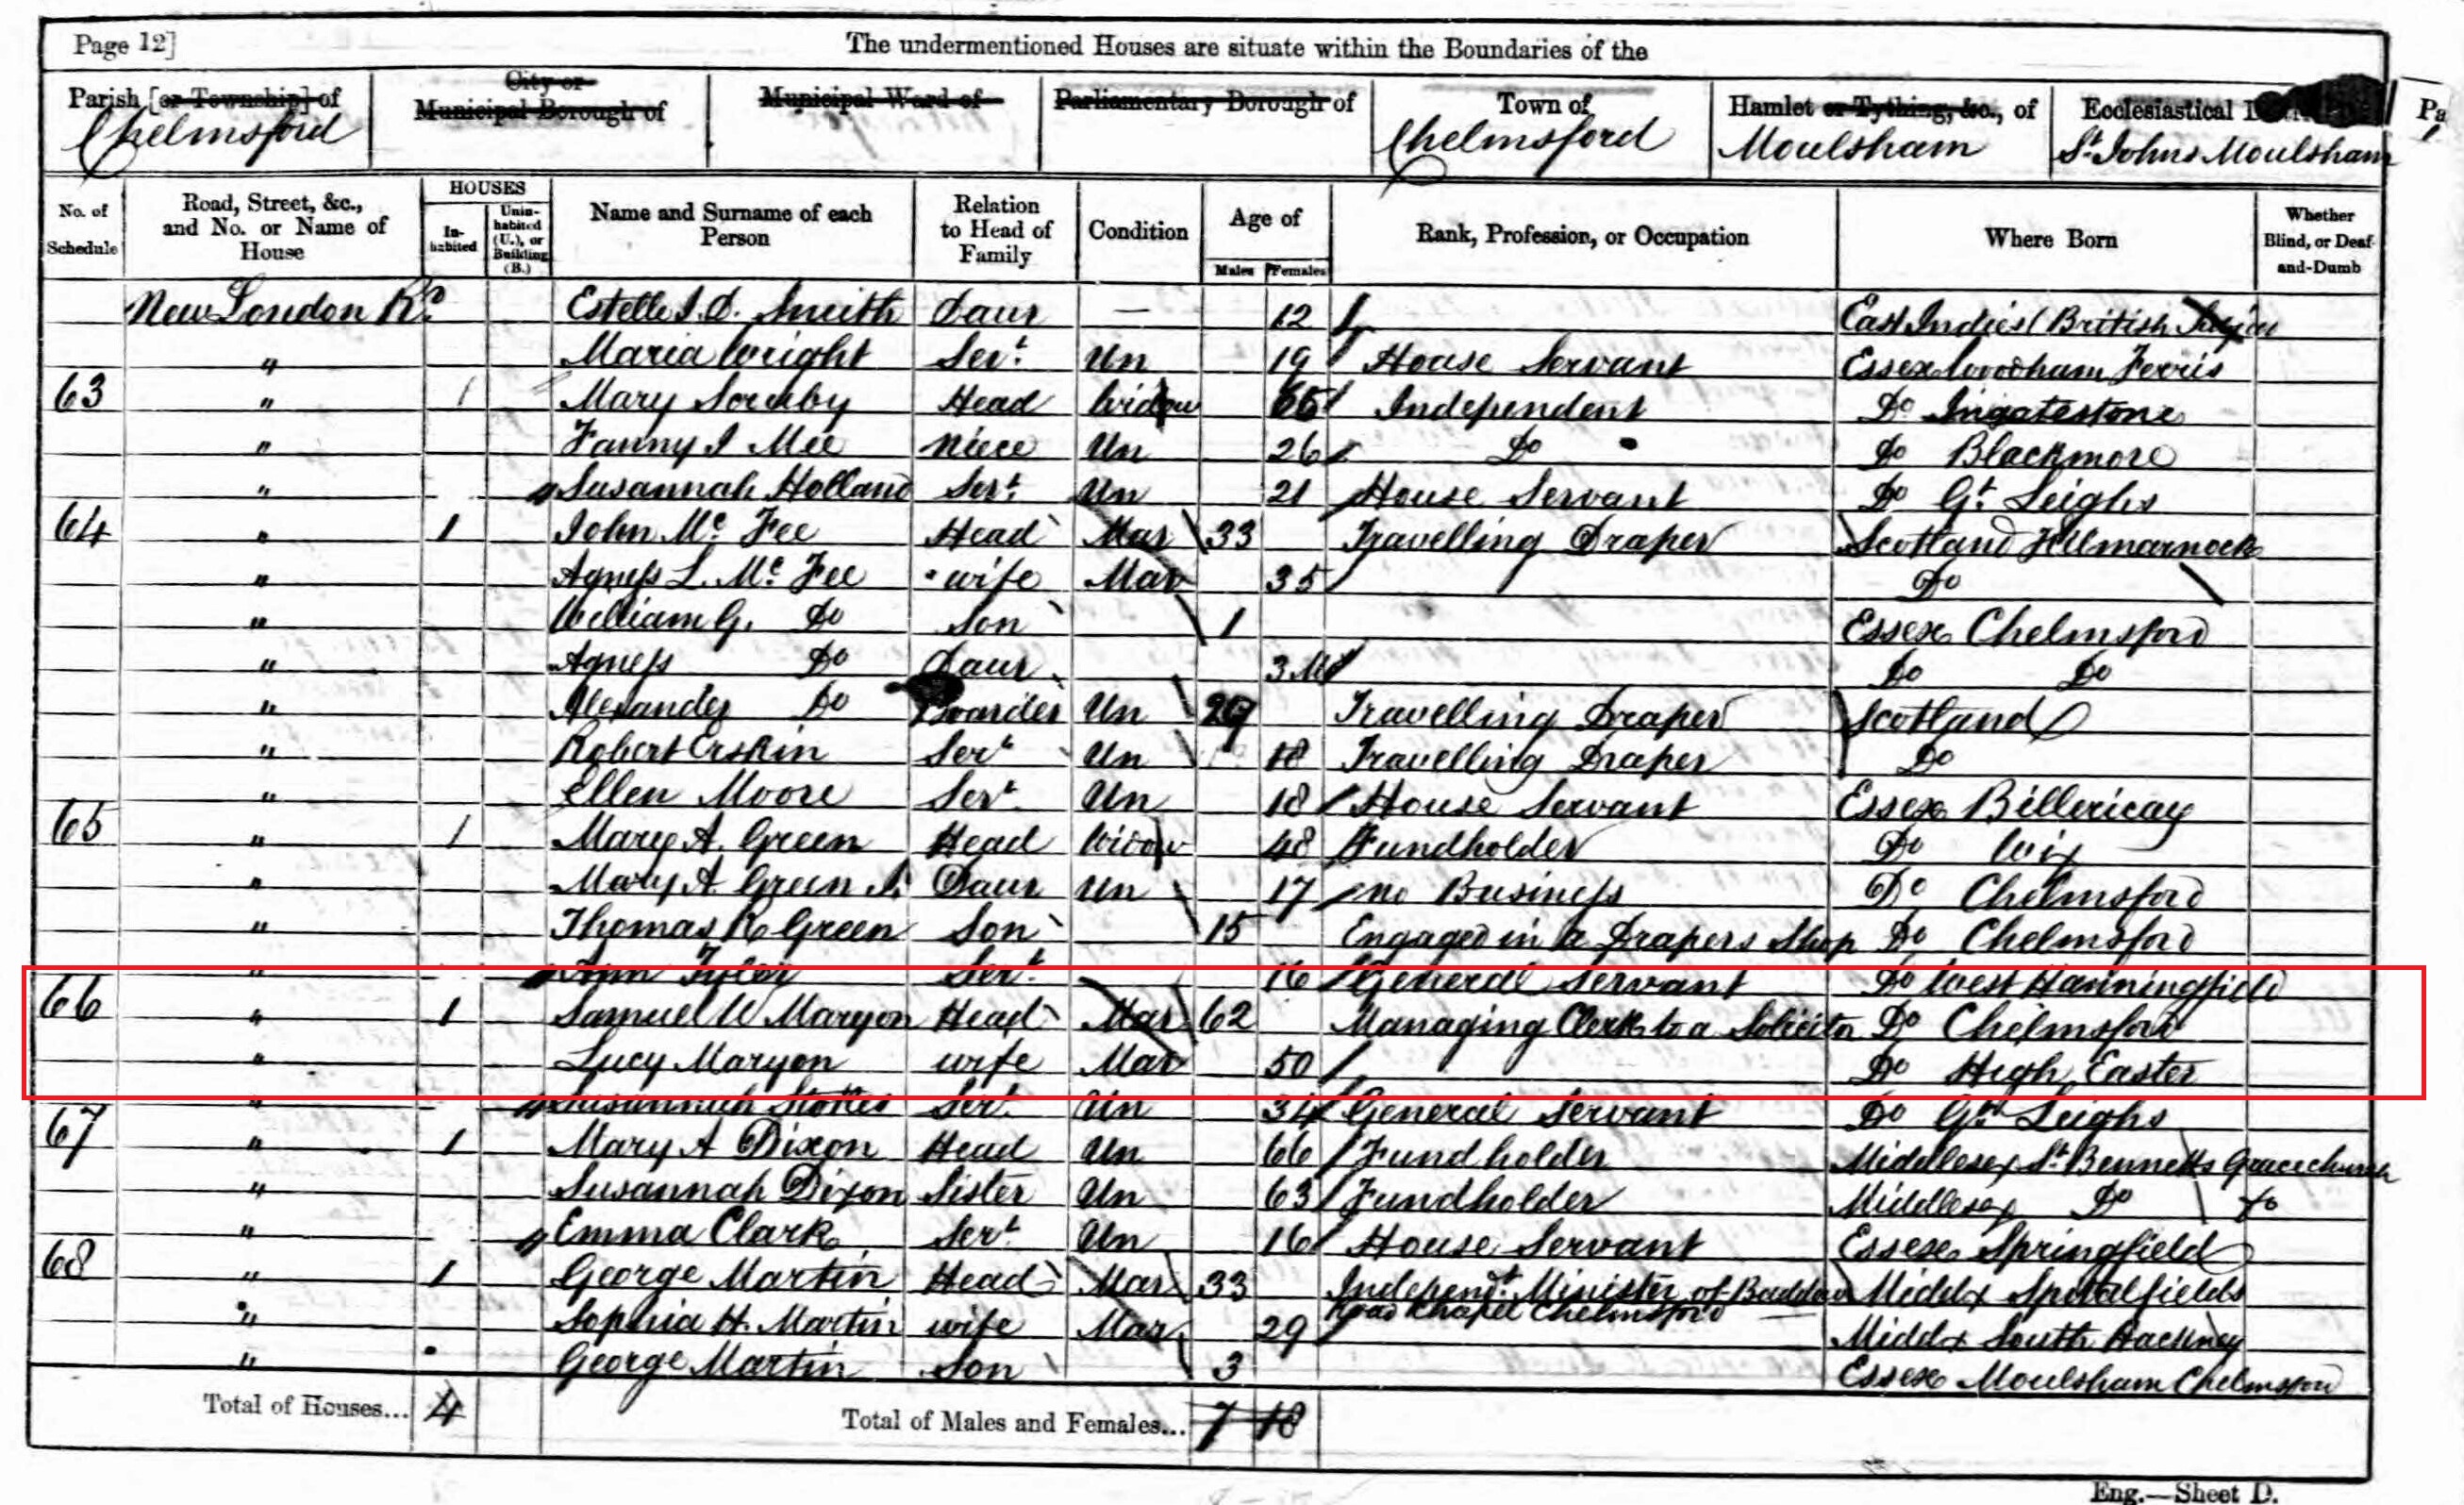 Page 12]
The undermentioned Houses are situate within the Boundaries of the
Parish [or Township] of City or Municipal Borough of Municipal Ward of Parliamentary Borough of Town of Hamlet or Tything, &c., of Ecclesiastical Pa
Chelmsford Chelmsford Moulsham St. Johns Moulsham
No. of Schedule Road, Street, &c., and No. or Name of House HOUSES Inhabited Uninhabited (U.), or Building (B.) Name and Surname of each Person Relation to Head of Family Condition Age of Males Females Rank, Profession, or Occupation Where Born Whether Blind, or Deaf-and-Dumb
New London Rd. Estelle J. D. Smith Daur — 12 East Indies (British
" Maria Wright Sert. Un 19 House Servant Essex Woodham Ferris
63 " 1 Mary Head Widow Independent Do Ingatestone
" Fanny I Mee Niece Un 26 Do Do Blackmore
" Susannah Holland Sert. Un 21 House Servant Do Gt. Leighs
64 " 1 John Mc. Fee Head Mar 33 Travelling Draper Scotland Kilmarnock
" Agness L. Mc. Fee wife Mar 35 Do
" William G. Do Son 1 Essex Chelmsford
" Agness Do Daur 3 M Do Do
" Alexander Do Boarder Un Travelling Draper Scotland
" Robert Erskin Sert Un 18 Travelling Draper Do
" Ellen Moore Sert. Un 18 House Servant Essex Billericay
65 " 1 Mary A. Green Head Widow 48 Fundholder Do Wix
" Mary A Green Daur Un 17 no Business Do Chelmsford
" Thomas R Green Son 15 Engaged in a Drapers Shop Do Chelmsford
" Ann Tyler Sert. 16 General Servant Do West Hanningfield
66 " 1 Samuel W Maryon Head Mar 62 Managing Clerk to a Solicitor Do Chelmsford
" Lucy Maryon wife Mar 50 Do High Easter
" Susannah Stokes Sert. Un 34 General Servant Do Gt. Leighs
67 " 1 Mary A Dixon Head Un 66 Fundholder Middlesex St. Bennetts Gracechurch
" Susannah Dixon Sister Un 63 Fundholder Middlesex Do Do
" Emma Clark Sert. Un 16 House Servant Essex Springfield
68 " 1 George Martin Head Mar 33 Independt. Minister of Baddow Middx Spitalfields
Road Chapel Chelmsford
" Sophia H. Martin wife Mar 29 Middx South Hackney
" George Martin Son 3 Essex Moulsham Chelmsford
Total of Houses... 4 Total of Males and Females... 7 18
Eng.—Sheet D.